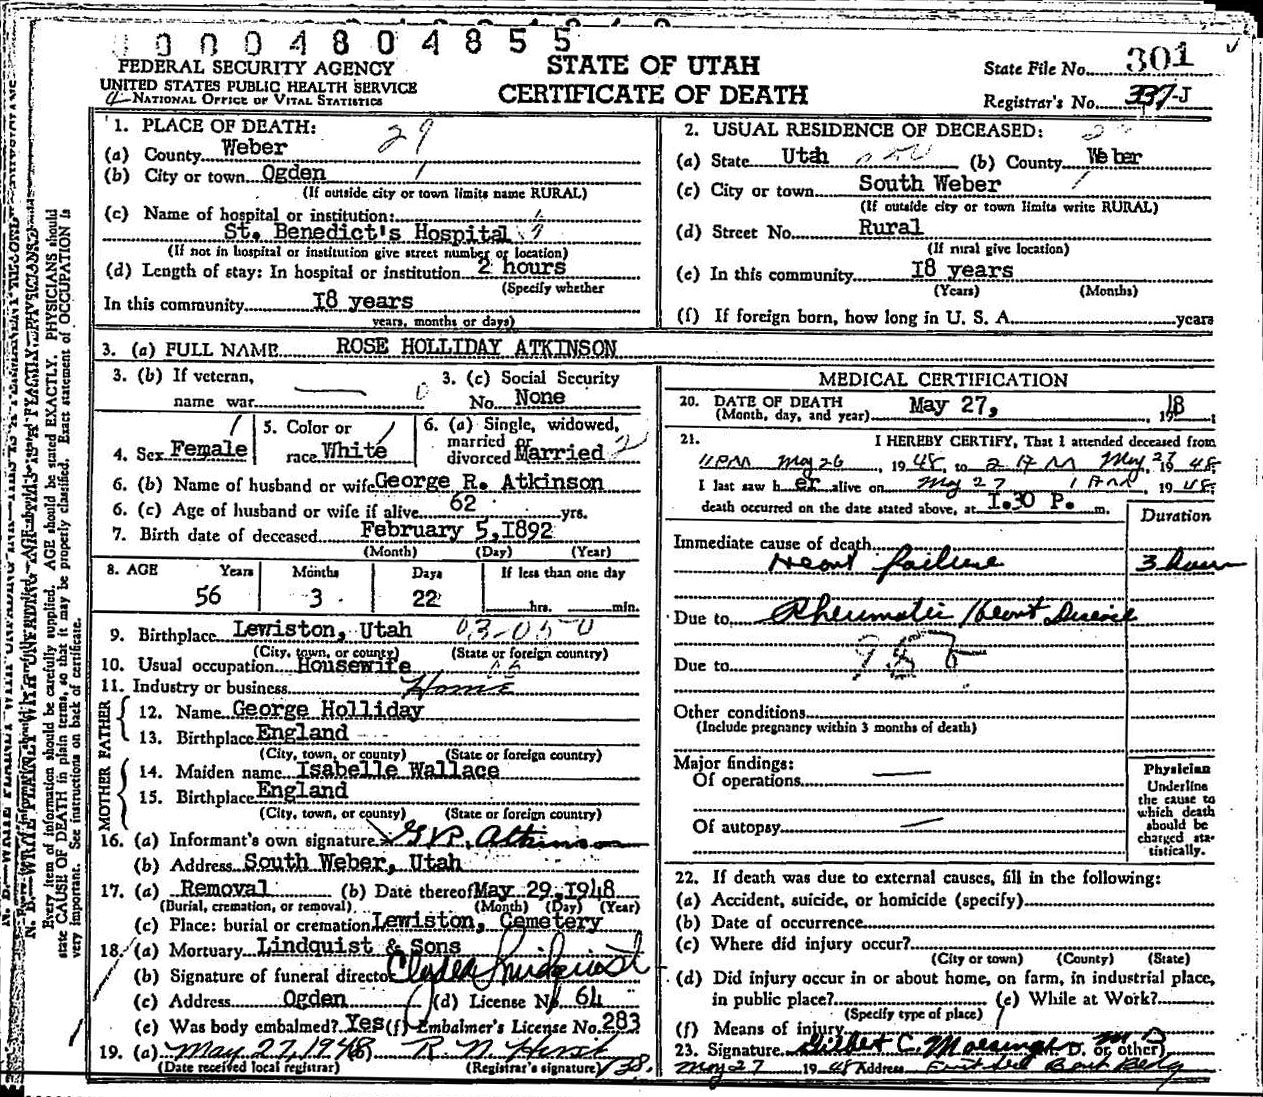 0 0 0 0 4 8 0 4 8 5 5
FEDERAL SECURITY AGENCY
UNITED STATES PUBLIC HEALTH SERVICE
NATIONAL OFFICE OF VITAL STATISTICS
STATE OF UTAH
CERTIFICATE OF DEATH
State File No. 301
Registrar's No. 337-J
1. PLACE OF DEATH: 29
(a) County Weber
(b) City or town Ogden
(If outside city or town limits name RURAL)
(c) Name of hospital or institution:
St. Benedict's Hospital
(If not in hospital or institution give street number or location)
(d) Length of stay: In hospital or institution 2 hours
(Specify whether
In this community 18 years
years, months or days)
2. USUAL RESIDENCE OF DECEASED:
(a) State Utah (b) County Weber
(c) City or town South Weber
(If outside city or town limits write RURAL)
(d) Street No. Rural
(If rural give location)
(e) In this community 18 years
(Years) (Months)
(f) If foreign born, how long in U. S. A. years
3. (a) FULL NAME ROSE HOLLIDAY ATKINSON
3. (b) If veteran,
name war
3. (c) Social Security
No. None
4. Sex Female
5. Color or
race White
6. (a) Single, widowed,
married or
divorced Married
6. (b) Name of husband or wife George R. Atkinson
6. (c) Age of husband or wife if alive 62 yrs.
7. Birth date of deceased February 5, 1892
(Month) (Day) (Year)
8. AGE Years Months Days If less than one day
56 3 22 hrs. min.
9. Birthplace Lewiston, Utah
(City, town, or county) (State or foreign country)
10. Usual occupation Housewife
11. Industry or business Home
FATHER
12. Name George Holliday
13. Birthplace England
(City, town, or county) (State or foreign country)
MOTHER
14. Maiden name Isabelle Wallace
15. Birthplace England
(City, town, or county) (State or foreign country)
16. (a) Informant's own signature G. R. Atkinson
(b) Address South Weber, Utah
17. (a) Removal (b) Date thereof May 29, 1948
(Burial, cremation, or removal) (Month) (Day) (Year)
(c) Place: burial or cremation Lewiston, Cemetery
18. (a) Mortuary Lindquist & Sons
(b) Signature of funeral director Clyde Lindquist
(c) Address Ogden (d) License No. 64
(e) Was body embalmed? Yes (f) Embalmer's License No. 283
19. (a) May 27, 1948 (b) R. N. Hirst
(Date received local registrar) (Registrar's signature)
MEDICAL CERTIFICATION
20. DATE OF DEATH
(Month, day, and year) May 27, 1948
21. I HEREBY CERTIFY, That I attended deceased from
11 PM May 26, 1948, to May 27 1948.
I last saw her alive on May 27 1 AM 1948.
death occurred on the date stated above, at 1.30 P. m.
Duration
Immediate cause of death
Heart failure 3 hours
Due to Rheumatic Heart Disease
Due to
Other conditions
(Include pregnancy within 3 months of death)
Major findings:
Of operations
Of autopsy
Physician
Underline
the cause to
which death
should be
charged sta-
tistically.
22. If death was due to external causes, fill in the following:
(a) Accident, suicide, or homicide (specify)
(b) Date of occurrence
(c) Where did injury occur?
(City or town) (County) (State)
(d) Did injury occur in or about home, on farm, in industrial place,
in public place? (e) While at Work?
(Specify type of place)
(f) Means of injury
23. Signature Gilbert C. (M. D. or other) M D
May 27 1948 Address
Every item of information should be carefully supplied. AGE should be stated EXACTLY. PHYSICIANS should
state CAUSE OF DEATH in plain terms, so that it may be properly classified. Exact statement of OCCUPATION is
very important. See instructions on back of certificate.